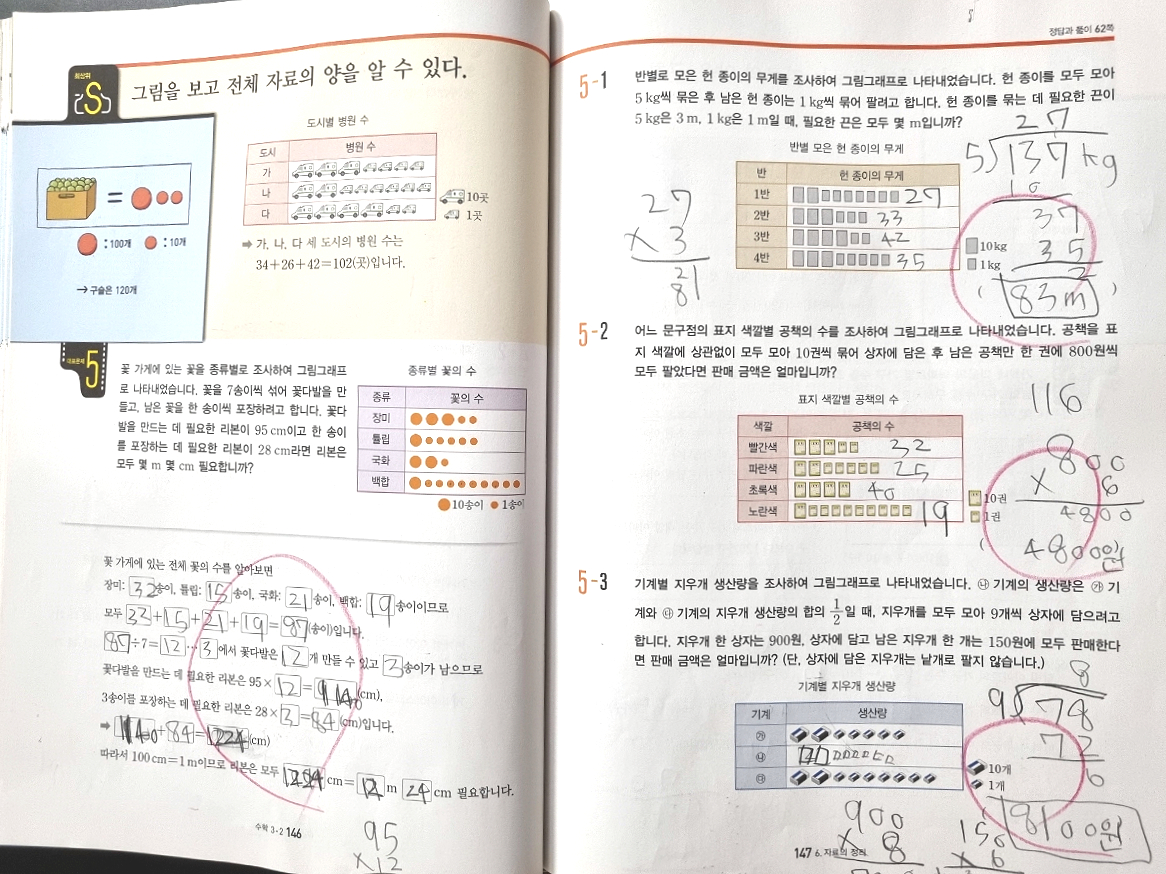 최상위
S
그림을 보고 전체 자료의 양을 알 수 있다.
도시별 병원 수
도시 병원 수
가
나
다
10곳
1곳
: 100개 : 10개
→ 구슬은 120개
➡ 가, 나, 다 세 도시의 병원 수는
34+26+42=102(곳)입니다.
대표문제
5
꽃 가게에 있는 꽃을 종류별로 조사하여 그림그래프
로 나타내었습니다. 꽃을 7송이씩 섞어 꽃다발을 만
들고, 남은 꽃을 한 송이씩 포장하려고 합니다. 꽃다
발을 만드는 데 필요한 리본이 95 cm이고 한 송이
를 포장하는 데 필요한 리본이 28 cm라면 리본은
모두 몇 m 몇 cm 필요합니까?
종류별 꽃의 수
종류 꽃의 수
장미
튤립
국화
백합
10송이 1송이
꽃 가게에 있는 전체 꽃의 수를 알아보면
장미: 32송이, 튤립: 15송이, 국화: 21송이, 백합: 19송이이므로
모두 32+15+21+19=87(송이)입니다.
87÷7=12…3에서 꽃다발은 12개 만들 수 있고 3송이가 남으므로
꽃다발을 만드는 데 필요한 리본은 95×12= (cm),
3송이를 포장하는 데 필요한 리본은 28×3=84(cm)입니다.
➡ +84= (cm)
따라서 100 cm=1 m이므로 리본은 모두 1224 cm= 12 m 24 cm 필요합니다.
95
×12
수학 3-2 146
정답과 풀이 62쪽
5-1
반별로 모은 헌 종이의 무게를 조사하여 그림그래프로 나타내었습니다. 헌 종이를 모두 모아
5 kg씩 묶은 후 남은 헌 종이는 1 kg씩 묶어 팔려고 합니다. 헌 종이를 묶는 데 필요한 끈이
5 kg은 3 m, 1 kg은 1 m일 때, 필요한 끈은 모두 몇 m입니까?
반별 모은 헌 종이의 무게
반 헌 종이의 무게
1반 27
2반 33
3반 42
4반 35
10 kg
1 kg
27
×3
21
81
27
5)137kg
10
37
35
2
(83m)
5-2
어느 문구점의 표지 색깔별 공책의 수를 조사하여 그림그래프로 나타내었습니다. 공책을 표
지 색깔에 상관없이 모두 모아 10권씩 묶어 상자에 담은 후 남은 공책만 한 권에 800원씩
모두 팔았다면 판매 금액은 얼마입니까?
표지 색깔별 공책의 수
색깔 공책의 수
빨간색 32
파란색 25
초록색 40
노란색 19
10권
1권
116
800
× 6
4800
(4800원
5-3
기계별 지우개 생산량을 조사하여 그림그래프로 나타내었습니다. ㉯ 기계의 생산량은 ㉮ 기
계와 ㉰ 기계의 지우개 생산량의 합의 1/2일 때, 지우개를 모두 모아 9개씩 상자에 담으려고
합니다. 지우개 한 상자는 900원, 상자에 담고 남은 지우개 한 개는 150원에 모두 판매한다
면 판매 금액은 얼마입니까? (단, 상자에 담은 지우개는 낱개로 팔지 않습니다.)
기계별 지우개 생산량
기계 생산량
㉮
㉯
㉰
10개
1개
8
9)78
72
6
8100원
900
× 8
150
× 6
147 6. 자료의 정리